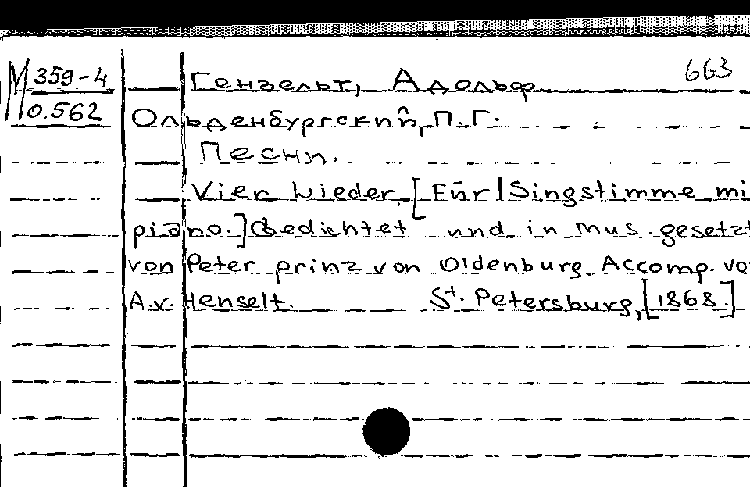 М 359-4
0.562
663
Гензельт, Адольф
Ольденбургский, П.Г.
Песни.
Vier Lieder [Für Singstimme mi
piano.] Gedichtet und in mus. gesetzt
von Peter prinz von Oldenburg. Accomp. vo
A.v. Henselt. St. Petersburg, [1868.]